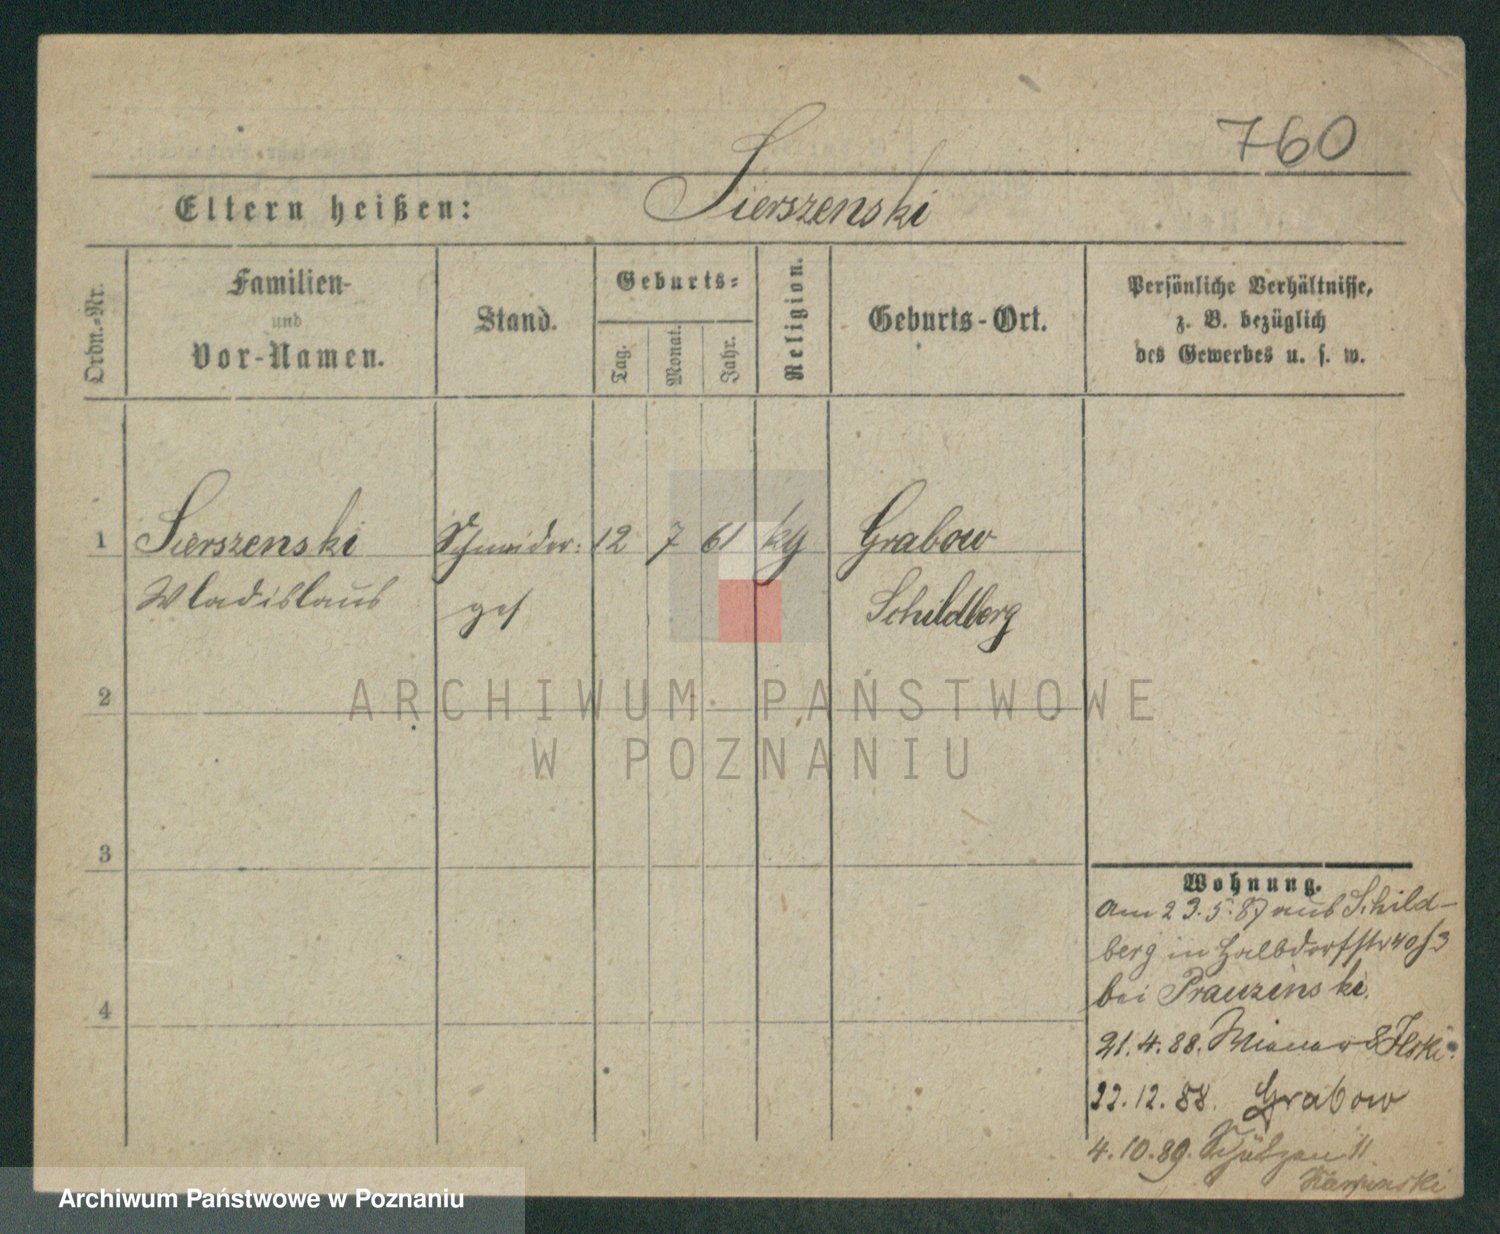 760
Eltern heißen: Sierszenski
Ordn.-Nr.
Familien-
und
Vor-Namen.
Stand.
Geburts-
Tag.
Monat.
Jahr.
Religion.
Geburts-Ort.
Persönliche Verhältnisse,
z. B. bezüglich
des Gewerbes u. s. w.
1 Sierszenski Schneider- 12 7 61 kg Grabow
Wladislaus ges Schildberg
2
ARCHIWUM PAŃSTWOWE
W POZNANIU
3
4
Wohnung.
am 23.5.87 aus Schild-
berg in Halbdorfstr 40/3
bei Prauzinski.
21.4.88. 8
22.12.88. Grabow
4.10.89. Schützen 11
Archiwum Państwowe w Poznaniu